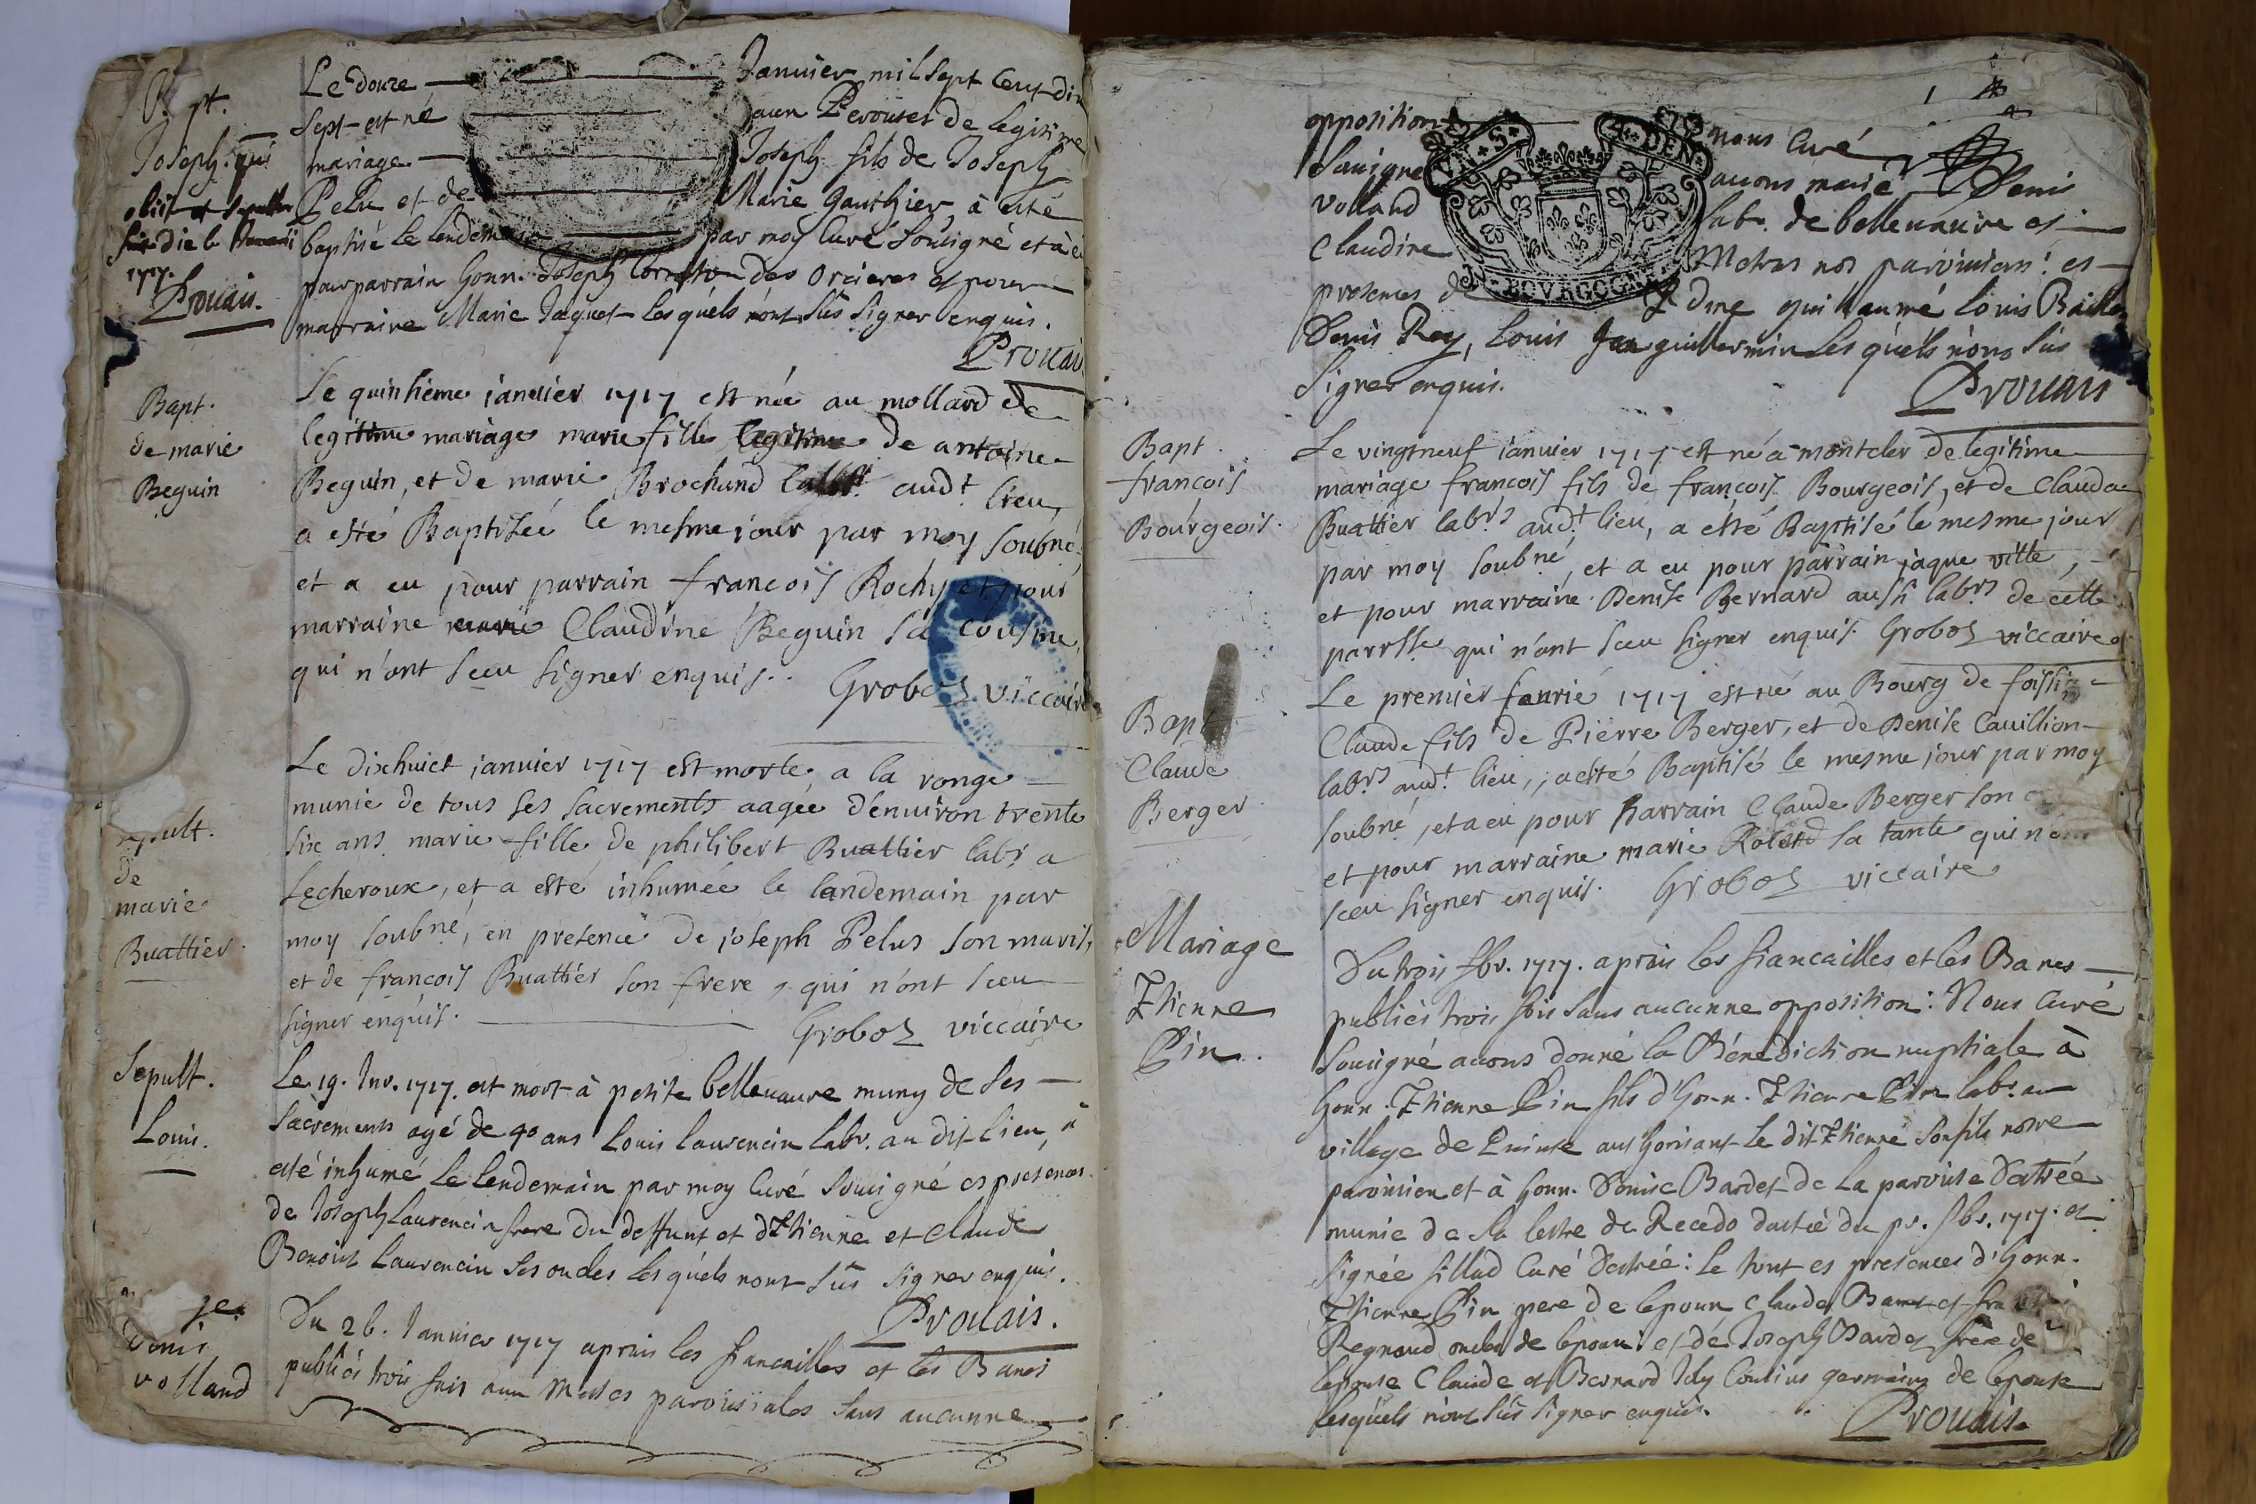 Bapt.
Joseph qui
obiit et sepultus
1717.
Prouais.
Le douze Janvier mil sept cent dix
sept est né aux Perouses de legitime
mariage Joseph fils de Joseph
Pelu et de Marie Gauthier, à esté
baptisé le lendemain par moy Curé Souigné et à eu
pour parrain honn. Joseph des Orcieres et pour
marraine Marie Jaquet lesquéls n'ont sûs signer enquis.
Prouais
Bapt.
de marie
Beguin
Le quinsieme janvier 1717 est née au mollard de
legitime mariage marie fille legitime de antoine
Beguin, et de marie Brochand labrs audt lieu,
a esté Baptisée le mesme jour par moy soubné,
et a eu pour parrain francois Rochy et pour
marraine marie Claudine Beguin sa cousine,
qui n'ont sceu signer enquis..
Grobos viccaire
sepult.
de
marie
Buattier.
Le dixhuict janvier 1717 est morte a la ronge
munie de tous ses sacrements aagée d'enuiron trente
six ans marie fille de philibert Buattier labr a
Lecheroux, et a esté inhumée le landemain par
moy soubné, en presence de joseph Pelus son maris,
et de francois Buattier son frere, qui n'ont sceu
signer enquis.
Grobos viccaire
Sepult.
Louis.
Le 19. Jnv. 1717. est mort à petite bellevaure muny de ses
sacrements agé de 40 ans Louis laurencin labr. au dit lieu, à
esté inhumé le lendemain par moy Curé Souigné es présences
de Joseph Laurencin frere du deffunt et d'Etienne et Claude
Benoist Laurencin ses oncles lesquéls n'ont sûs signer enquis.
Prouais.
Denis
volland
Du 26. Janvier 1717 aprais les fiancailles et les Banes
publiés trois fois aux Messes paroissiales sans aucunne
opposition nous Curé
Souigné auons marié Denis
Volland labr. de bellevaure et
Claudine Metras nos paroissiens: es
presences de
Denis Rey, Louis guillermin lesquéls n'ont sûs
signer enquis.
Prouais
+S+
DEN
BOVRGOGNE
Bapt.
francois
Bourgeois.
Le vingtneuf janvier 1717 est né a montcler de legitime
mariage francois fils de francois Bourgeois, et de Claudine
Buattier labrs audt lieu, a esté Baptisé le mesme jour
par moy soubné, et a eu pour parrain jaque ville,
et pour marraine Denise Bernard aussi labrs de cette
parrsse qui n'ont sceu signer enquis. Grobos viccaire
Bapt
Claude
Berger
Le premier feurié 1717 est né au Bourg de foissia
Claude fils de Pierre Berger, et de Denise Cauillion
labrs audt lieu, a esté Baptisé le mesme jour par moy
soubné, et a eu pour parrain Claude Berger son
et pour marraine marie Rolend sa tante qui n'ont
sceu signer enquis. Grobos viccaire
Mariage
Etienne
Pin.
Du trois fbr. 1717. aprais les fiancailles et les Banes
publiés trois fois sans aucunne opposition: Nous Curé
Souigné auons donné la Bénédiction nuptiale à
honn. Etienne Pin fils d'honn. Etienne Pin labr. au
village de authorisant le dit Etienne son fils notre
paroissien et à honn. Denise Bardet de la paroisse d'atrée
munie de sa lettre de Recedo dattée du pr. fbr. 1717. et
signée sillad Curé d'estrée: le tout es presences d'honn.
Etienne Pin pere de lepoux Claude
Regnaud oncle de lepoux et de Joseph Bardet frere de
lepouse Claude et Bernard Joly Cousins germains de lepouse
lesquéls n'ont sûs signer enquis.
Prouais.